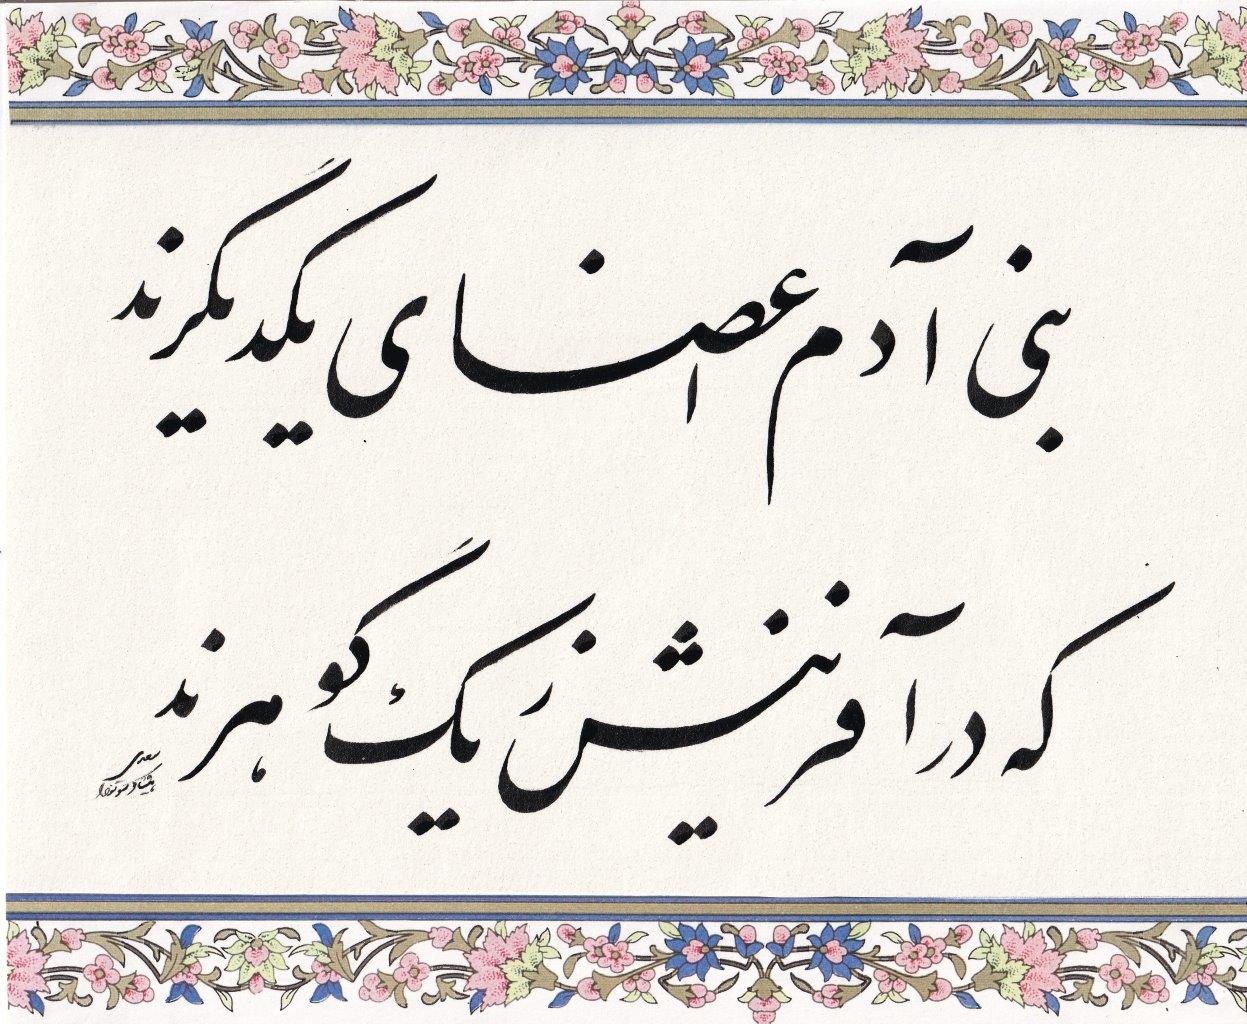 بنی آدم اعضای یکدیگرند
که در آفرینش ز یک گوهرند
سعدی